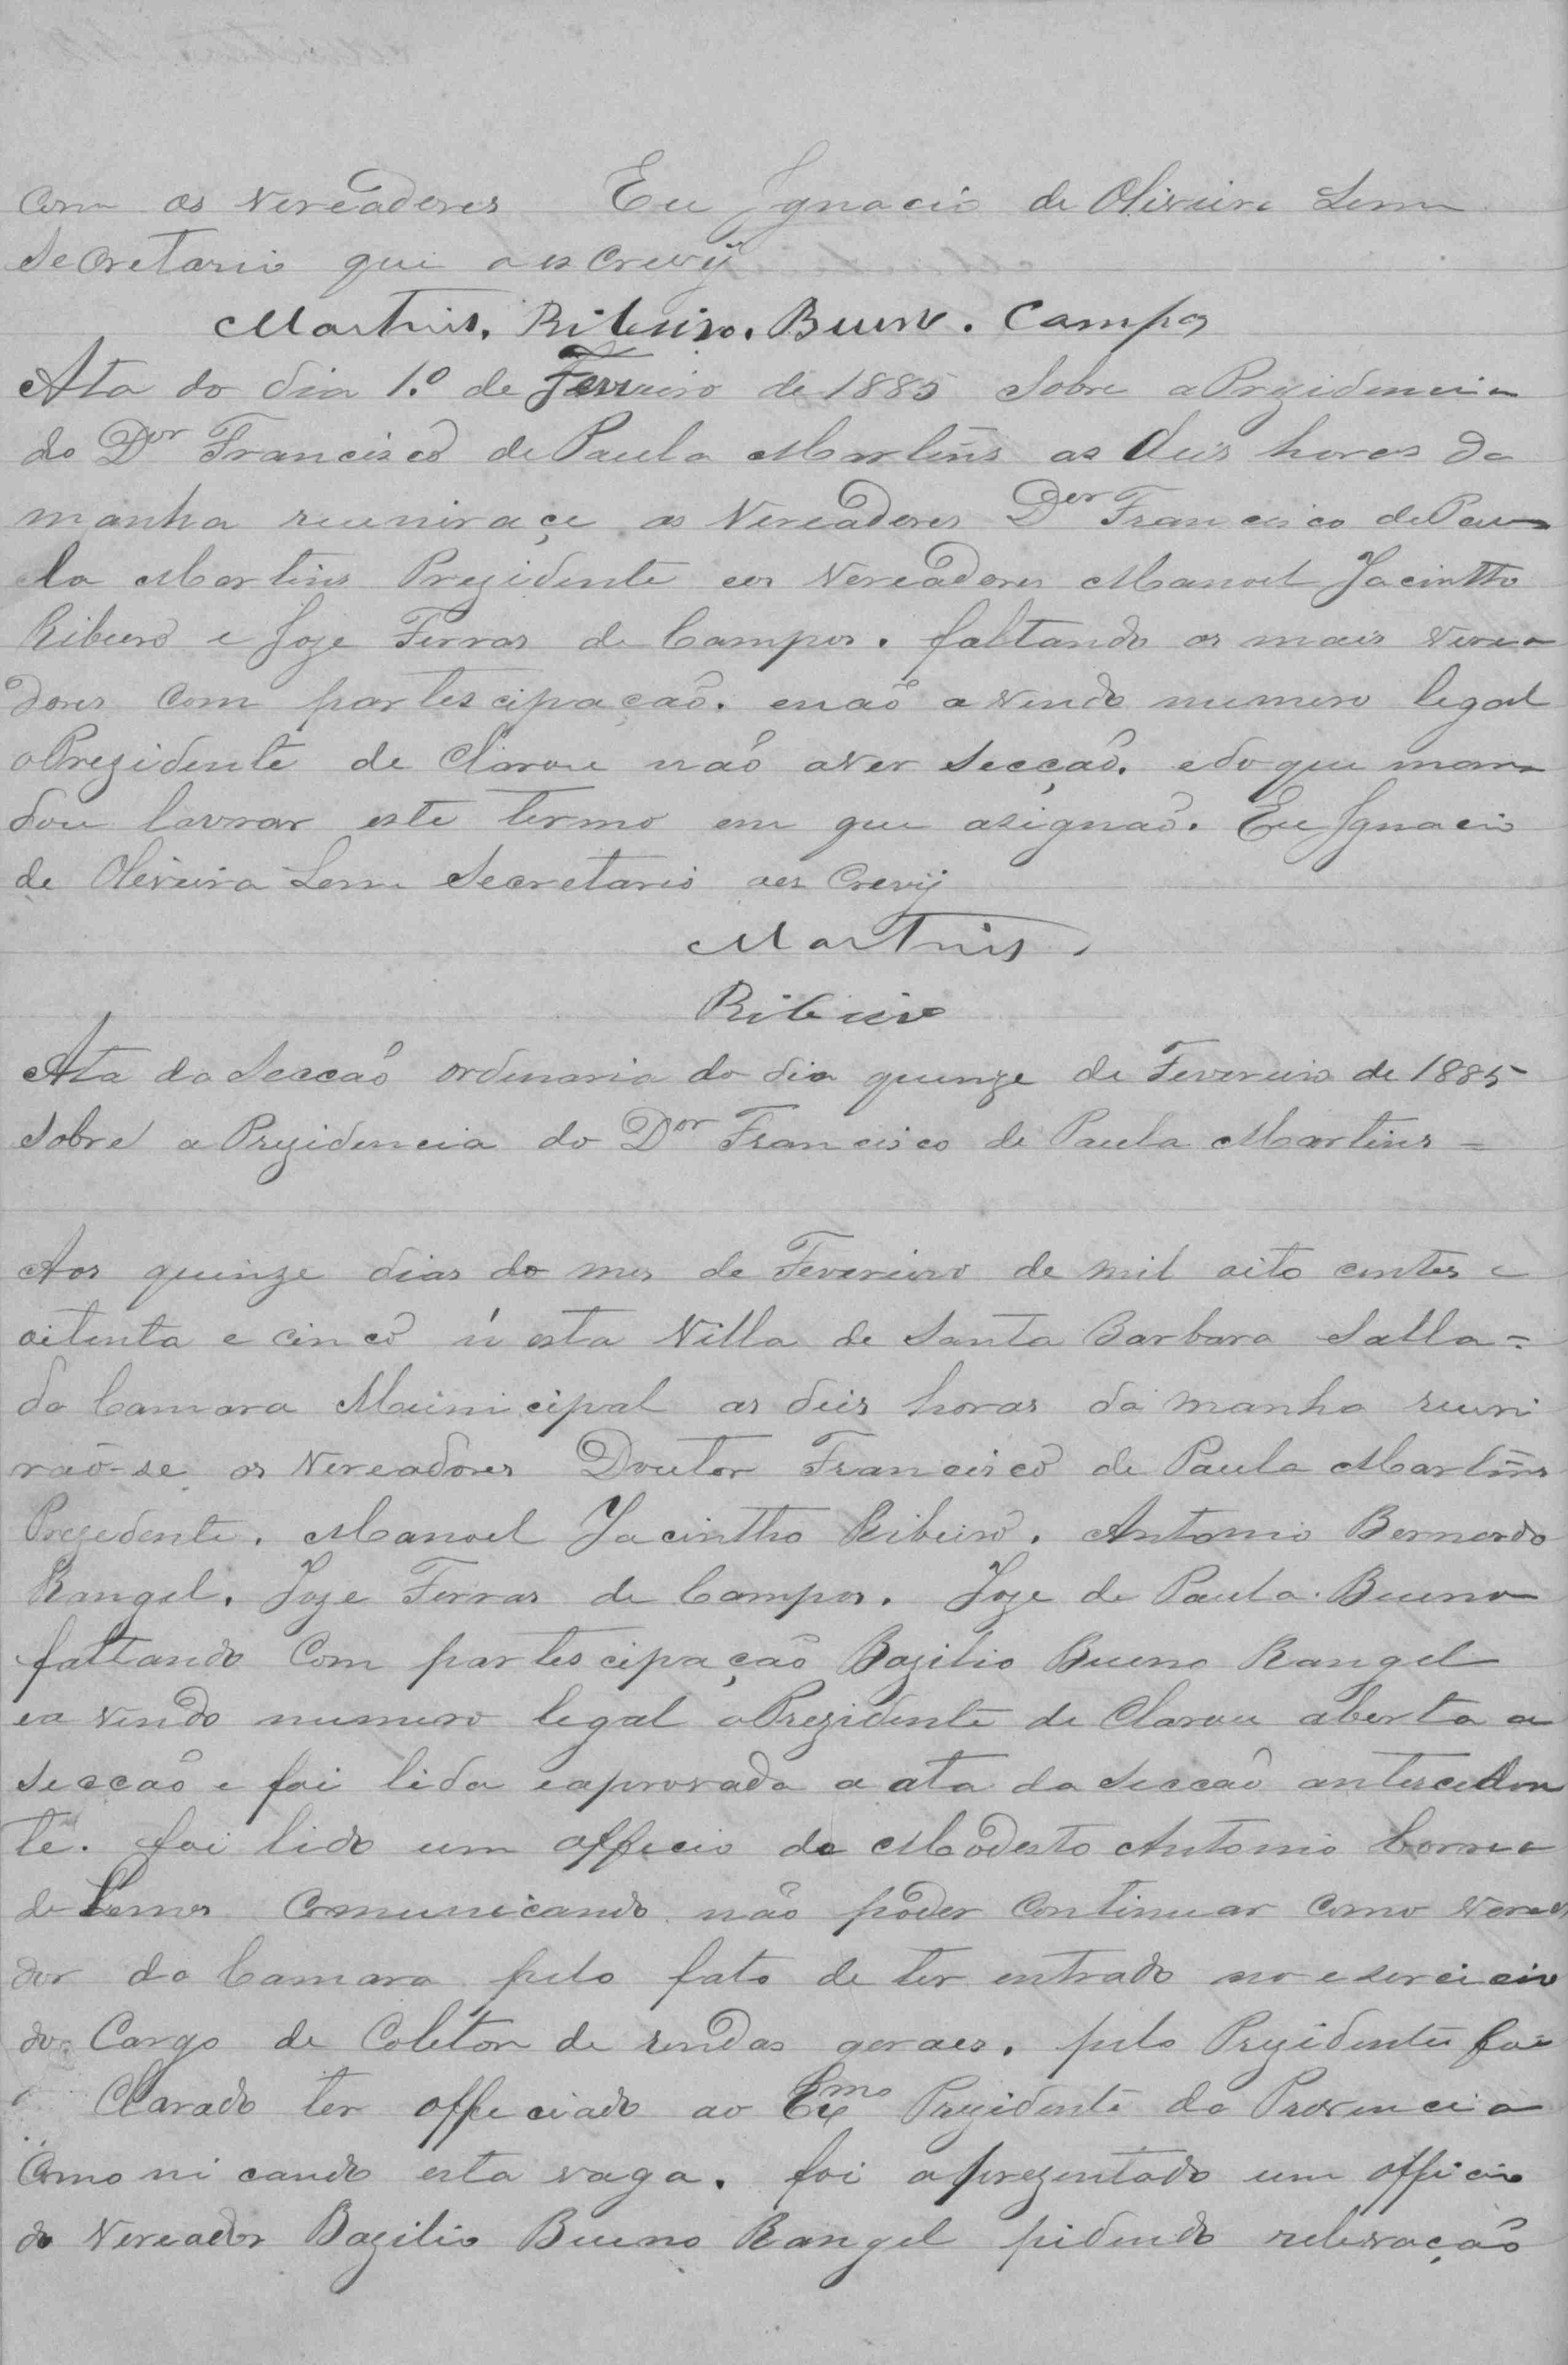 com os Vereadores Eu Ignacio de Oliveira Leme
Secretario que a es crevij
Martins. Ribeiro. Bueno. Campos
Ata do dia 1.º de Fevereiro de 1885 Sobre a Prezidencia
do Dor Francisco de Paula Martins as deis horas da
manha reuniraçe os Vereadores Dor Francisco de Pau
la Martins Prezidente eos Vereadores Manoel Jacintho
Ribeiro e Joze Ferras de Campos. faltando os mais Verea
dores com partescipação. enaõ avendo numero legal
o Prezidente de Clarou naõ aver Secçaõ. edo que man
dou lavrar este termo em que asignaõ. Eu Ignacio
de Oliveira Leme Secretario aes crevij
Martins.
Ribeiro
Ata da Seccaõ ordenaria do dia quinze de Fevereiro de 1885
Sobre a Prezidencia do Dor Francisco de Paula Martins =
Aos quinze dias do mes de Fevereiro de mil oito centos e
oitenta e cinco n'esta Villa de Santa Barbara Salla =
da Camara Municipal as deis horas da manha reuni
raõ-se os Vereadores Doutor Francisco de Paula Martins
Prezedente. Manoel Jacintho Ribeiro. Antonio Bernardo
Rangel. Joze Ferras de Campos. Joze de Paula Bueno
faltando Com partescipaçaõ Bazilio Bueno Rangel
ea vendo numero legal o Prezidente de Clarou aberta a
seccaõ e foi lida eaprovada a ata da seccaõ anteceden
te. foi lido um officio de Modesto Antonio Correa
de Lemos Comunicando não poder Continuar Como Verea
dor da Camara pelo fato de ter entrado no exercicio
do Cargo de Coletor de rendas geraes. pelo Prezidente foi
Clarado ter officiado ao Exmo Prezidente da Provencia
Como ni cando esta vaga. foi aprezentado um officio
do Vereador Bazilio Bueno Rangel pidindo relevação